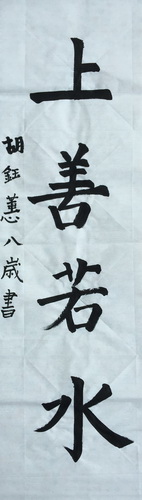 上善若水
胡鈺蕙八歲書